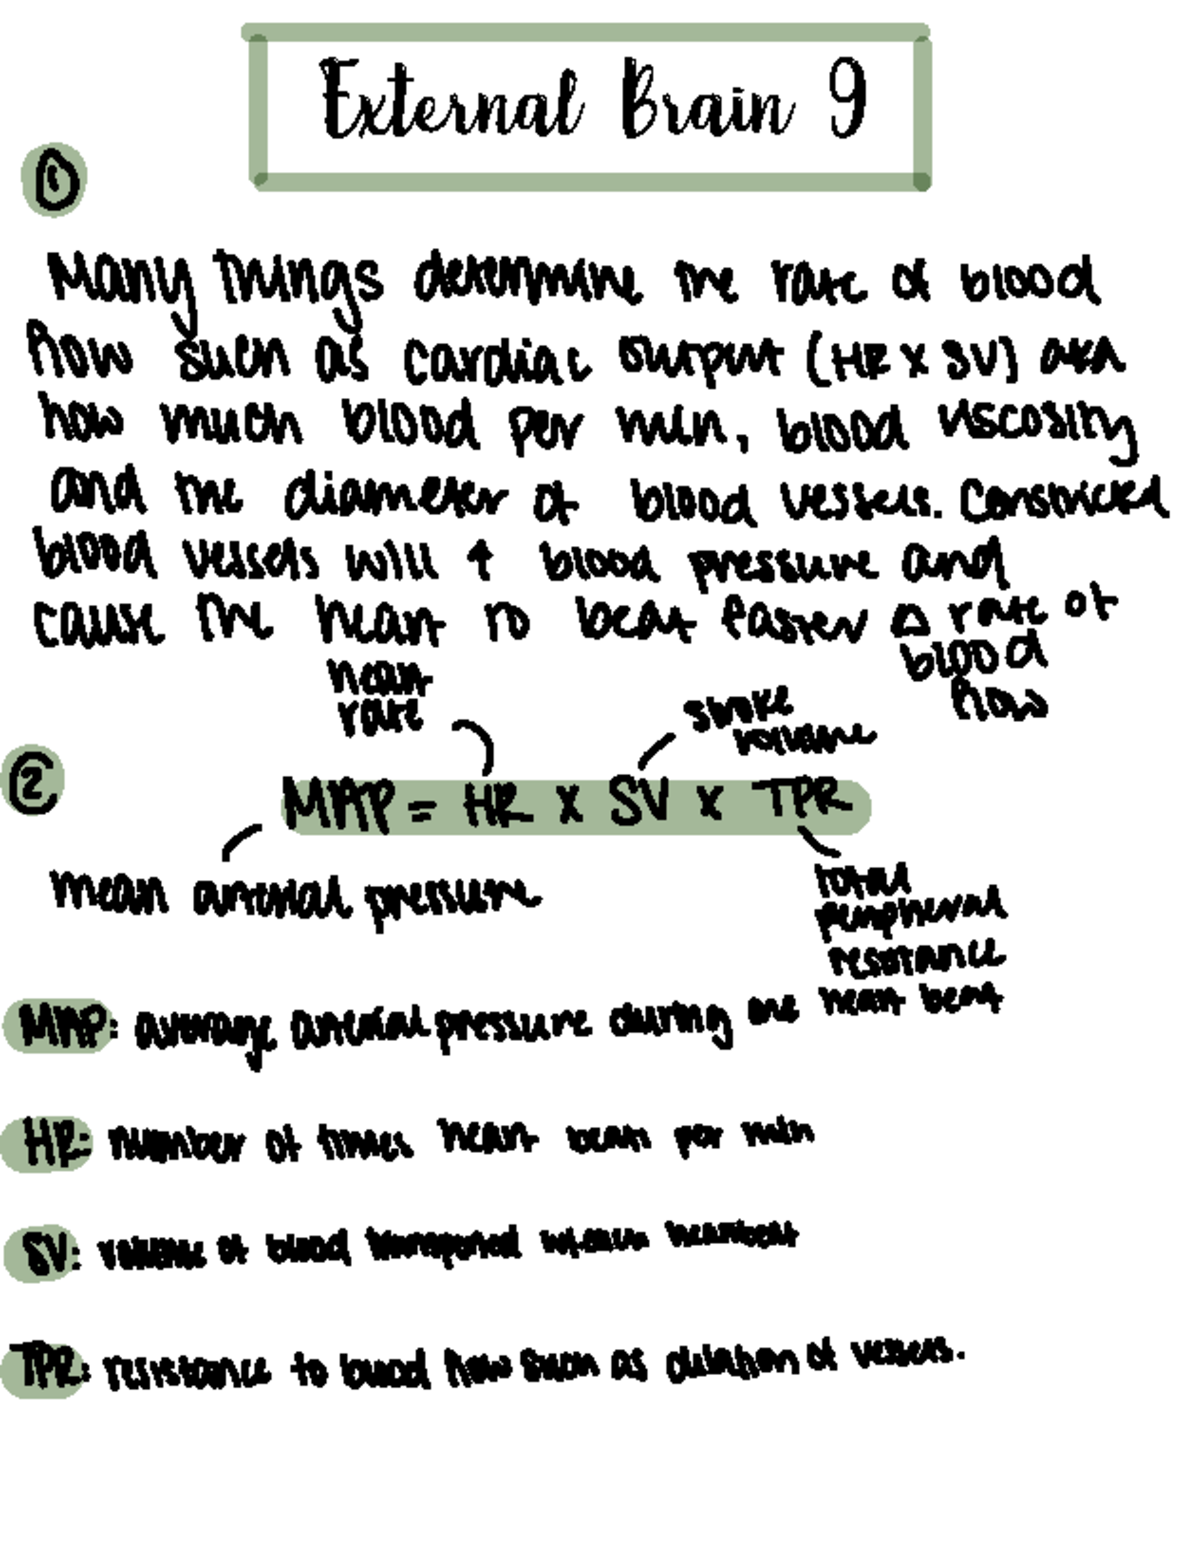 External Brain 9
①
Many things determine the rate of blood
flow such as cardiac output (HR x SV) aka
how much blood per min, blood viscosity
and the diameter of blood vessels. Constricted
blood vessels will ↑ blood pressure and
cause the heart to beat faster Δ rate of
blood
flow
heart
rate
stroke
volume
②
MAP = HR x SV x TPR
mean arterial pressure
total
peripheral
resistance
MAP: average arterial pressure during one heart beat
HR: number of times heart beats per min
SV: volume of blood transported w/each heartbeat
TPR: resistance to blood flow such as dilation of vessels.